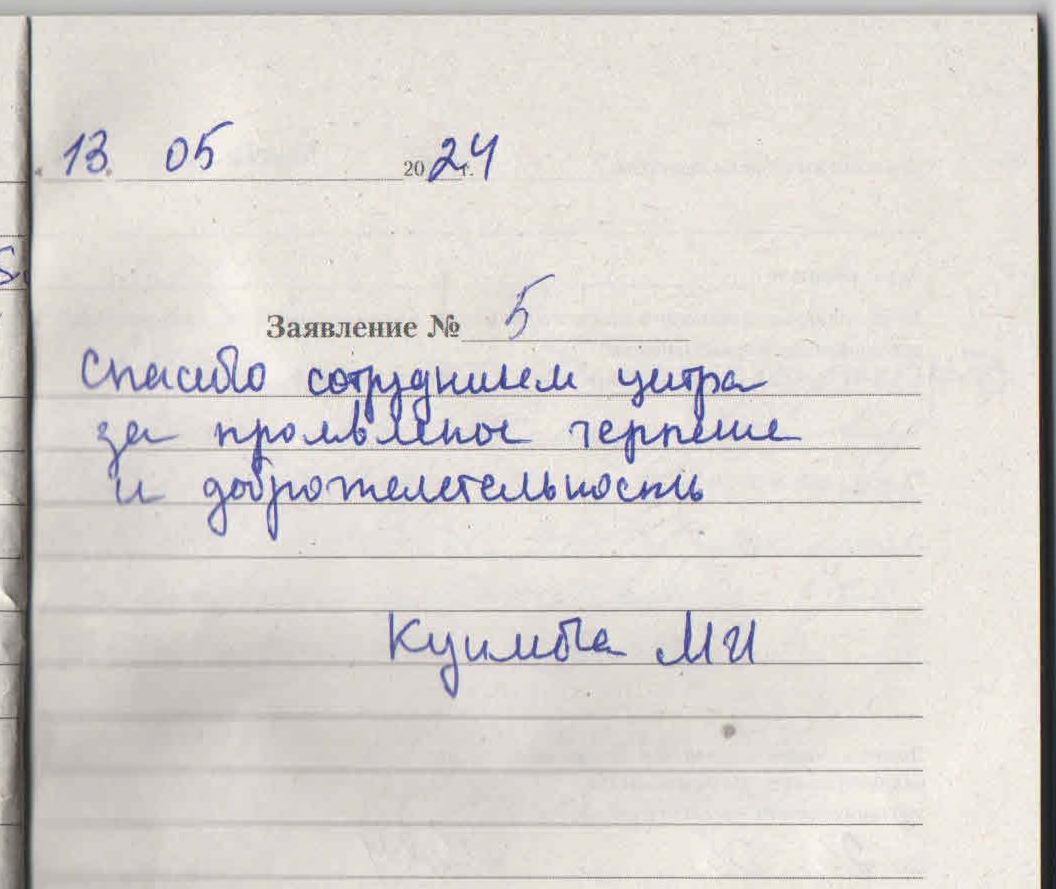 13. 05 2024 г.
Заявление № 5
Спасибо сотрудникам центра
за проявленное терпение
и доброжелательность
МИ